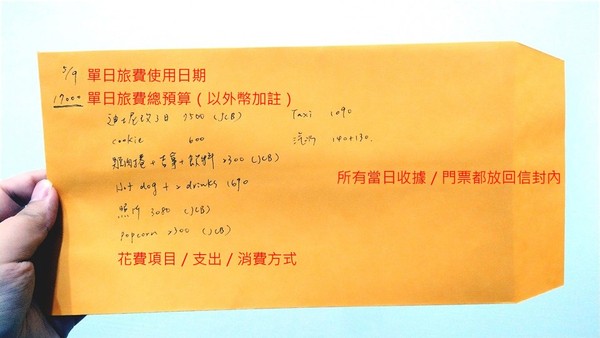 5/9 單日旅費使用日期
17000 單日旅費總預算（以外幣加註）
迪士尼 1日 7500 (JCB)
Taxi 1090
cookie 600
140+130
雞肉捲+吉拿+飲料 (JCB)
Hot dog + 2 drinks 1690
所有當日收據／門票都放回信封內
照片 3080 (JCB)
Popcorn (JCB)
花費項目／支出／消費方式